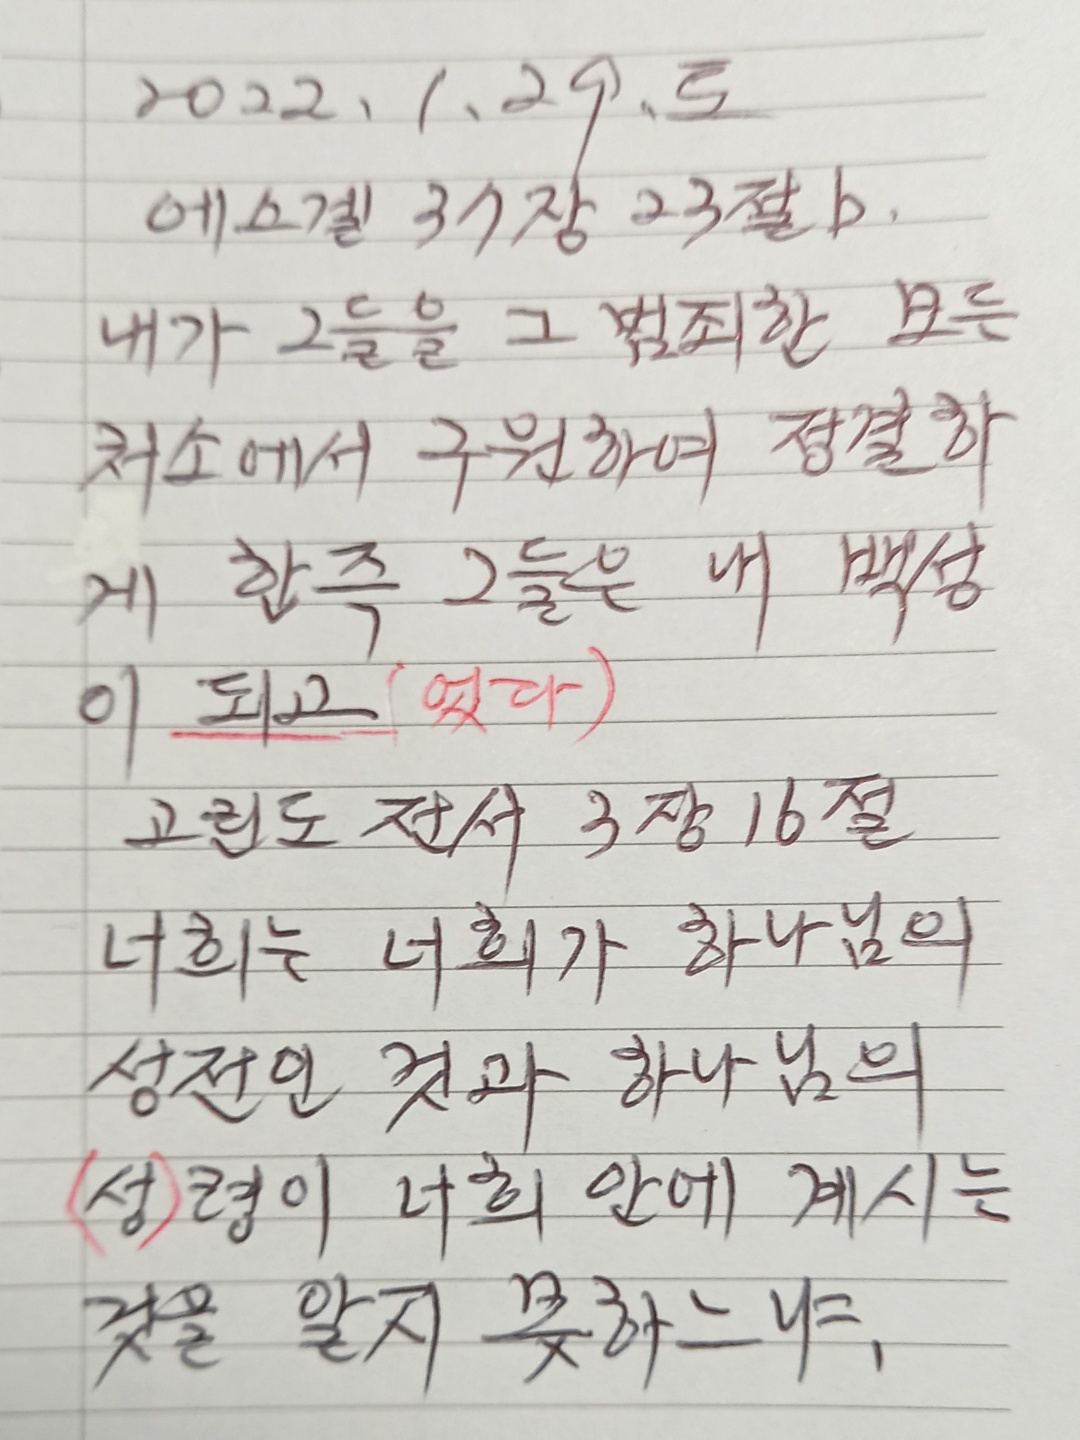 2022. 1. 29. 토
에스겔 37장 23절 b.
내가 그들을 그 범죄한 모든
처소에서 구원하여 정결하
게 한즉 그들은 내 백성
이 되고 (었다)
고린도 전서 3장 16절
너희는 너희가 하나님의
성전인 것과 하나님의
(성)령이 너희 안에 계시는
것을 알지 못하느냐.